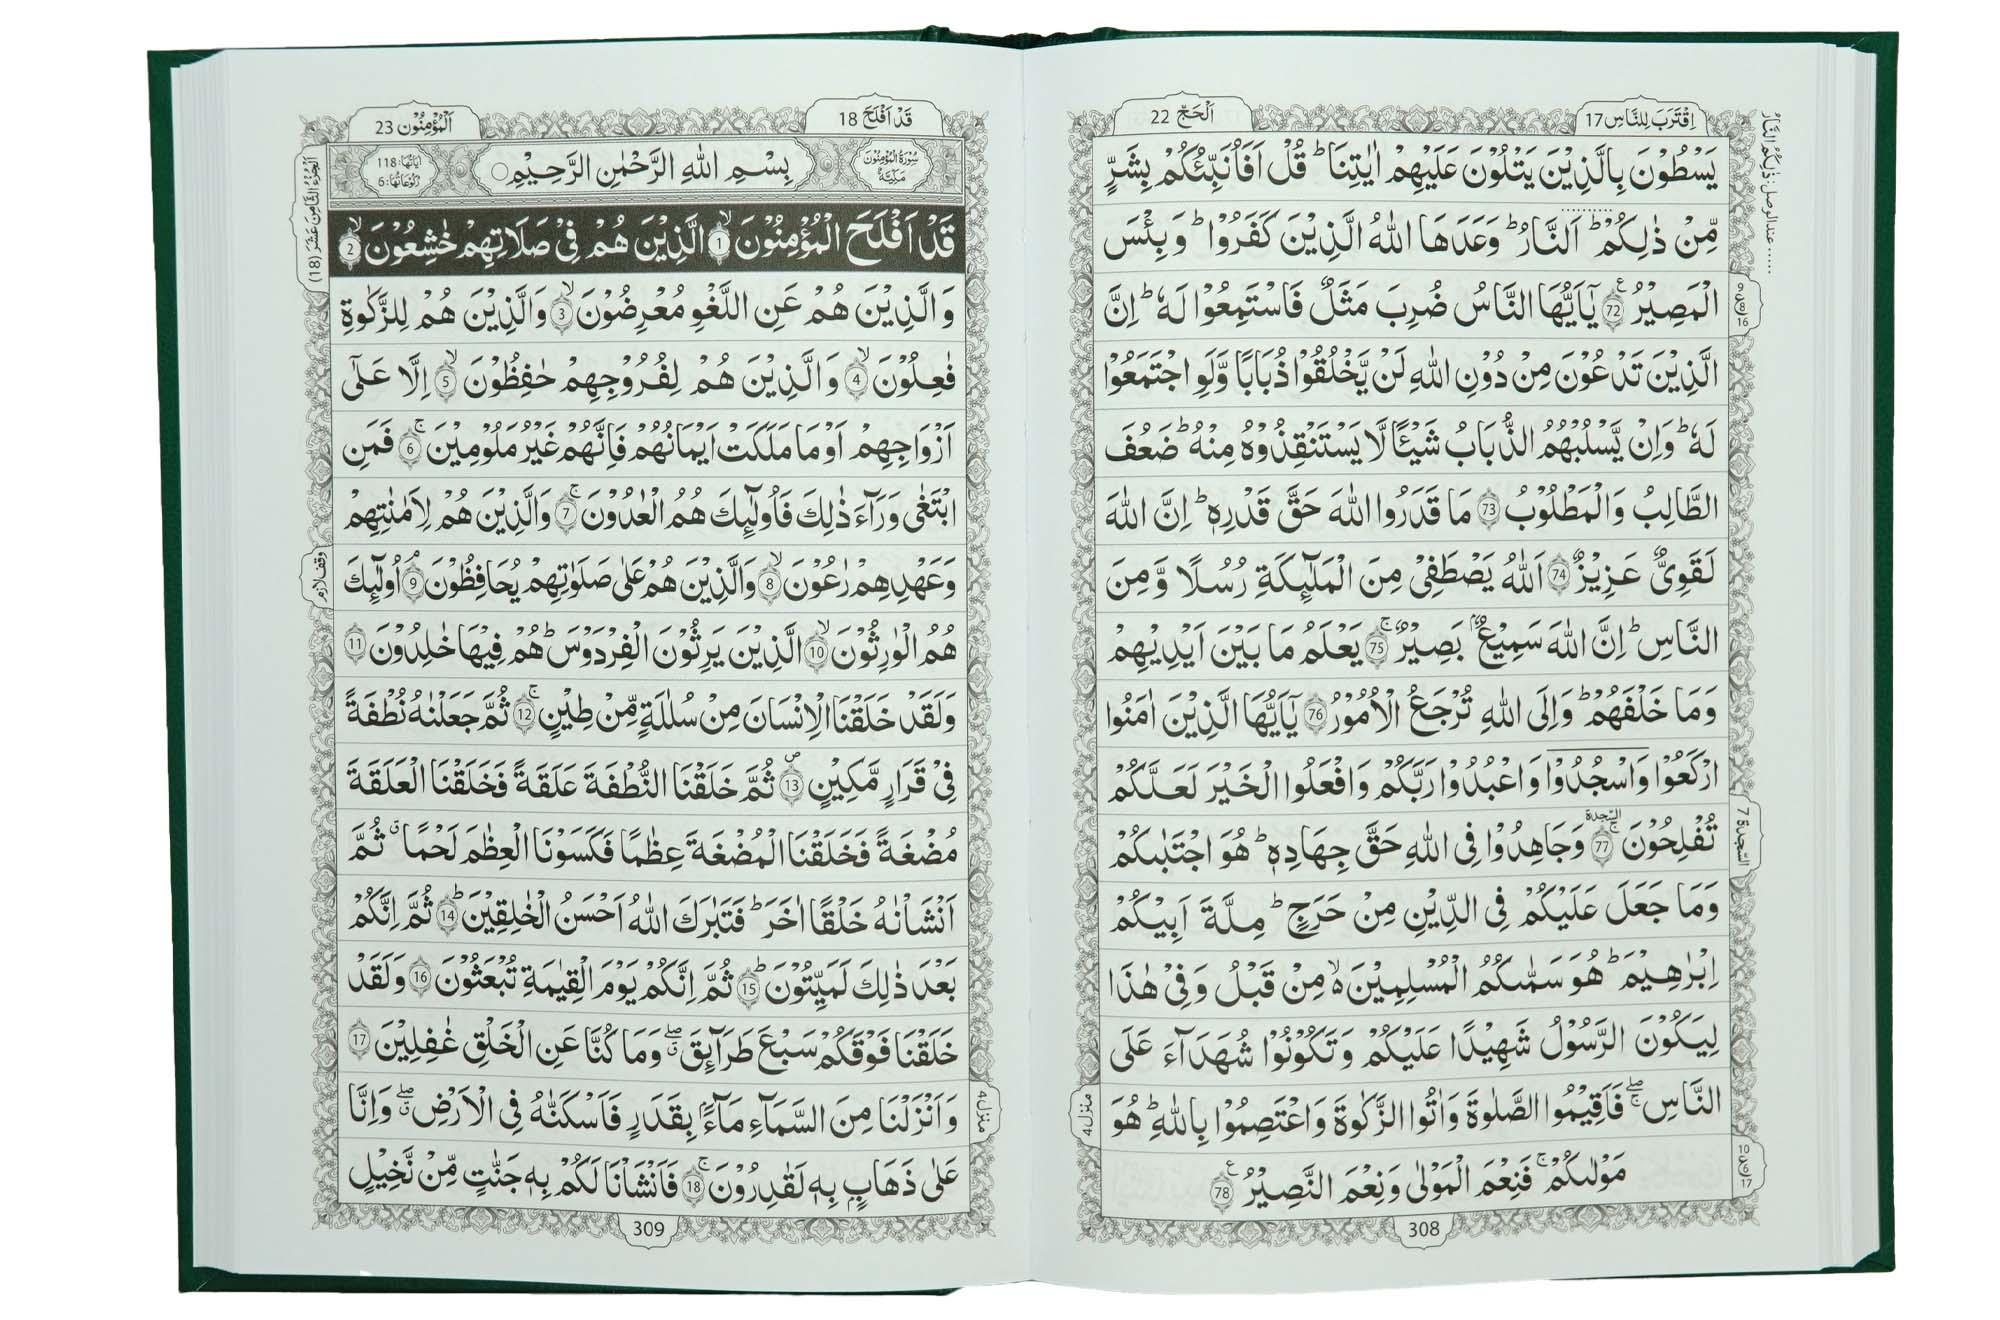 اِقْتَرَبَ لِلنَّاسِ 17
اَلْحَجّ 22
يَسْطُوْنَ بِالَّذِيْنَ يَتْلُوْنَ عَلَيْهِمْ اٰيٰتِنَا ؕ قُلْ اَفَاُنَبِّئُكُمْ بِشَرٍّ
مِّنْ ذٰلِكُمْ ؕ اَلنَّارُ ؕ وَعَدَهَا اللّٰهُ الَّذِيْنَ كَفَرُوْا ؕ وَبِئْسَ
الْمَصِيْرُ 72 يٰۤاَيُّهَا النَّاسُ ضُرِبَ مَثَلٌ فَاسْتَمِعُوْا لَهٗ ؕ اِنَّ
الَّذِيْنَ تَدْعُوْنَ مِنْ دُوْنِ اللّٰهِ لَنْ يَّخْلُقُوْا ذُبَابًا وَّلَوِ اجْتَمَعُوْا
لَهٗ ؕ وَاِنْ يَّسْلُبْهُمُ الذُّبَابُ شَيْـًٔا لَّا يَسْتَنْقِذُوْهُ مِنْهُ ؕ ضَعُفَ
الطَّالِبُ وَالْمَطْلُوْبُ 73 مَا قَدَرُوا اللّٰهَ حَقَّ قَدْرِهٖ ؕ اِنَّ اللّٰهَ
لَقَوِيٌّ عَزِيْزٌ 74 اَللّٰهُ يَصْطَفِيْ مِنَ الْمَلٰٓئِكَةِ رُسُلًا وَّمِنَ
النَّاسِ ؕ اِنَّ اللّٰهَ سَمِيْعٌۢ بَصِيْرٌ ۚ 75 يَعْلَمُ مَا بَيْنَ اَيْدِيْهِمْ
وَمَا خَلْفَهُمْ ؕ وَاِلَى اللّٰهِ تُرْجَعُ الْاُمُوْرُ 76 يٰۤاَيُّهَا الَّذِيْنَ اٰمَنُوا
ارْكَعُوْا وَاسْجُدُوْا وَاعْبُدُوْا رَبَّكُمْ وَافْعَلُوا الْخَيْرَ لَعَلَّكُمْ
تُفْلِحُوْنَ ۚ 77 السجدة وَجَاهِدُوْا فِي اللّٰهِ حَقَّ جِهَادِهٖ ؕ هُوَ اجْتَبٰىكُمْ
وَمَا جَعَلَ عَلَيْكُمْ فِي الدِّيْنِ مِنْ حَرَجٍ ؕ مِلَّةَ اَبِيْكُمْ
اِبْرٰهِيْمَ ؕ هُوَ سَمّٰىكُمُ الْمُسْلِمِيْنَ ۙ مِنْ قَبْلُ وَفِيْ هٰذَا
لِيَكُوْنَ الرَّسُوْلُ شَهِيْدًا عَلَيْكُمْ وَتَكُوْنُوْا شُهَدَآءَ عَلَى
النَّاسِ ۖۚ فَاَقِيْمُوا الصَّلٰوةَ وَاٰتُوا الزَّكٰوةَ وَاعْتَصِمُوْا بِاللّٰهِ ؕ هُوَ
مَوْلٰىكُمْ ۚ فَنِعْمَ الْمَوْلٰى وَنِعْمَ النَّصِيْرُ 78
308
السجدة 7
منزل 4
قَدْ اَفْلَحَ 18
اَلْمُؤْمِنُوْن 23
سُوْرَةُ الْمُؤْمِنُوْنَ مَكِّيَّةٌ
بِسْمِ اللّٰهِ الرَّحْمٰنِ الرَّحِيْمِ
اٰيَاتُهَا: 118
رُكُوْعَاتُهَا: 6
قَدْ اَفْلَحَ الْمُؤْمِنُوْنَ ۙ 1 الَّذِيْنَ هُمْ فِيْ صَلَاتِهِمْ خٰشِعُوْنَ ۙ 2
وَالَّذِيْنَ هُمْ عَنِ اللَّغْوِ مُعْرِضُوْنَ ۙ 3 وَالَّذِيْنَ هُمْ لِلزَّكٰوةِ
فٰعِلُوْنَ ۙ 4 وَالَّذِيْنَ هُمْ لِفُرُوْجِهِمْ حٰفِظُوْنَ ۙ 5 اِلَّا عَلٰٓى
اَزْوَاجِهِمْ اَوْ مَا مَلَكَتْ اَيْمَانُهُمْ فَاِنَّهُمْ غَيْرُ مَلُوْمِيْنَ ۚ 6 فَمَنِ
ابْتَغٰى وَرَآءَ ذٰلِكَ فَاُولٰٓئِكَ هُمُ الْعٰدُوْنَ ۚ 7 وَالَّذِيْنَ هُمْ لِاَمٰنٰتِهِمْ
وَعَهْدِهِمْ رٰعُوْنَ ۙ 8 وَالَّذِيْنَ هُمْ عَلٰى صَلَوٰتِهِمْ يُحَافِظُوْنَ ۘ 9 اُولٰٓئِكَ
هُمُ الْوٰرِثُوْنَ ۙ 10 الَّذِيْنَ يَرِثُوْنَ الْفِرْدَوْسَ ؕ هُمْ فِيْهَا خٰلِدُوْنَ 11
وَلَقَدْ خَلَقْنَا الْاِنْسَانَ مِنْ سُلٰلَةٍ مِّنْ طِيْنٍ ۚ 12 ثُمَّ جَعَلْنٰهُ نُطْفَةً
فِيْ قَرَارٍ مَّكِيْنٍ ۪ 13 ثُمَّ خَلَقْنَا النُّطْفَةَ عَلَقَةً فَخَلَقْنَا الْعَلَقَةَ
مُضْغَةً فَخَلَقْنَا الْمُضْغَةَ عِظٰمًا فَكَسَوْنَا الْعِظٰمَ لَحْمًا ۗ ثُمَّ
اَنْشَاْنٰهُ خَلْقًا اٰخَرَ ؕ فَتَبٰرَكَ اللّٰهُ اَحْسَنُ الْخٰلِقِيْنَ ؕ 14 ثُمَّ اِنَّكُمْ
بَعْدَ ذٰلِكَ لَمَيِّتُوْنَ ؕ 15 ثُمَّ اِنَّكُمْ يَوْمَ الْقِيٰمَةِ تُبْعَثُوْنَ 16 وَلَقَدْ
خَلَقْنَا فَوْقَكُمْ سَبْعَ طَرَآئِقَ ۖۗ وَمَا كُنَّا عَنِ الْخَلْقِ غٰفِلِيْنَ 17
وَاَنْزَلْنَا مِنَ السَّمَآءِ مَآءًۢ بِقَدَرٍ فَاَسْكَنّٰهُ فِي الْاَرْضِ ۖۗ وَاِنَّا
عَلٰى ذَهَابٍۭ بِهٖ لَقٰدِرُوْنَ ۚ 18 فَاَنْشَاْنَا لَكُمْ بِهٖ جَنّٰتٍ مِّنْ نَّخِيْلٍ
309
اَلْجُزْءُ الثَّامِنَ عَشَرَ (18)
وقف لازم
منزل 4